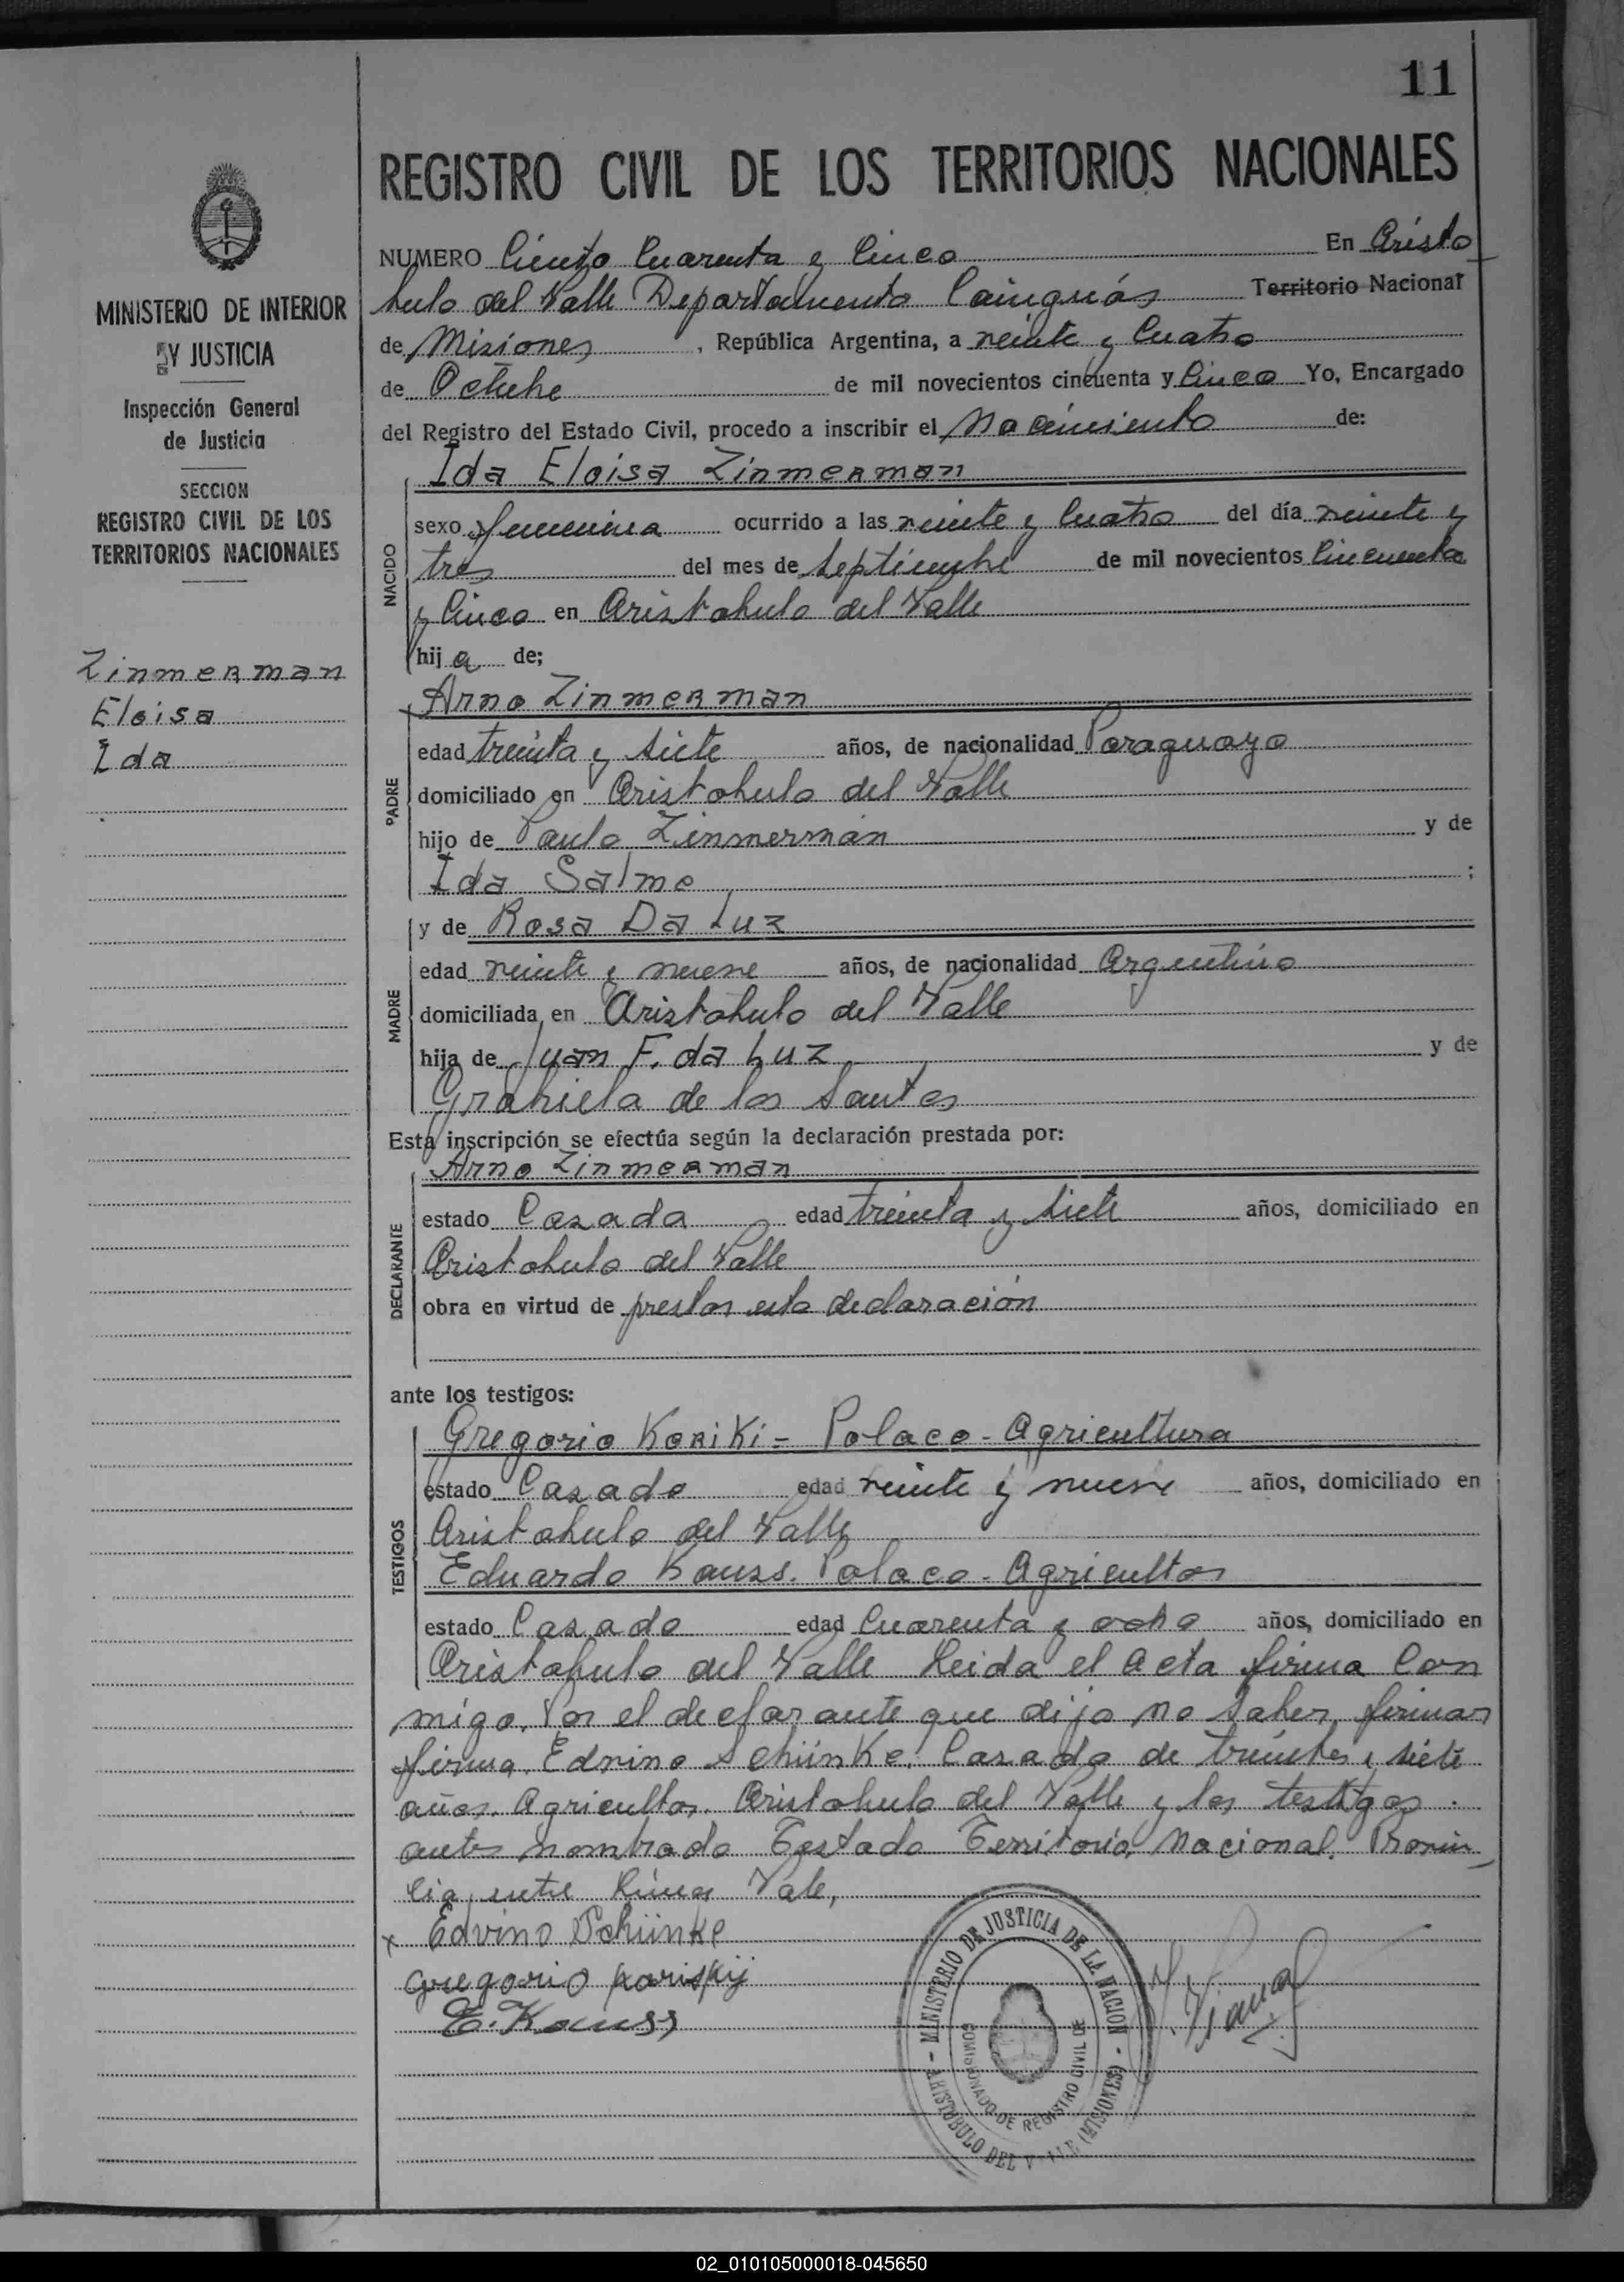 11
REGISTRO CIVIL DE LOS TERRITORIOS NACIONALES
MINISTERIO DE INTERIOR
Y JUSTICIA
Inspección General
de Justicia
SECCION
REGISTRO CIVIL DE LOS
TERRITORIOS NACIONALES
Zinmerman
Eloisa
Ida
NUMERO Ciento Cuarenta y Cinco En Aristo
bulo del Valle Departamento Cainguás Territorio Nacional
de Misiones, República Argentina, a veinte y Cuatro
de Octubre de mil novecientos cincuenta y Cinco Yo, Encargado
del Registro del Estado Civil, procedo a inscribir el Nacimiento de:
Ida Eloisa Zinmerman
NACIDO
sexo femenina ocurrido a las veinte y Cuatro del día veinte y
tres del mes de Septiembre de mil novecientos Cincuenta
y Cinco en Aristobulo del Valle
hija de;
Arno Zinmerman
PADRE
edad treinta y siete años, de nacionalidad Paraguayo
domiciliado en Aristobulo del Valle
hijo de Paulo Zinmerman y de
Ida Salme;
y de Rosa Da Luz
MADRE
edad veinte y nueve años, de nacionalidad Argentino
domiciliada en Aristobulo del Valle
hija de Juan F. da Luz y de
Grabiela de los Santos
Esta inscripción se efectúa según la declaración prestada por:
Arno Zinmerman
DECLARANTE
estado Casada edad treinta y siete años, domiciliado en
Aristobulo del Valle
obra en virtud de prestar esta declaración
ante los testigos:
TESTIGOS
Gregorio Koriki - Polaco - Agricultura
estado Casado edad veinte y nueve años, domiciliado en
Aristobulo del Valle
Eduardo Kauss. Polaco - Agricultor
estado Casado edad Cuarenta y ocho años, domiciliado en
Aristobulo del Valle Leida el Acta firma Con
migo. Por el declarante que dijo no saber firmar
firma. Edvino Schünke. Casado de treinta y siete
años. Agricultor. Aristobulo del Valle y los testigos.
antes nombrado Testado Territorio Nacional. Provin
cia entre línea Vale,
x Edvino Schünke
Gregorio Koriskij
E. Kauss
MINISTERIO DE JUSTICIA DE LA NACION
COMISIONADO DE REGISTRO CIVIL DE
ARISTOBULO DEL VALLE (MISIONES)
02_010105000018-045650